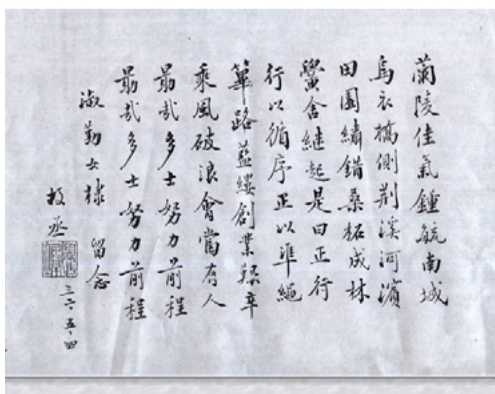 蘭陵佳氣鍾毓南城
烏衣橋側荆溪河濱
田園繡錯桑柘成林
黌舍継起是曰正行
行以循序正以準繩
篳路藍縷創業艱辛
乘風破浪會當有人
勗哉多士努力前程
勗哉多士努力前程
淑勤女棣 留念
丞 三六、五、四